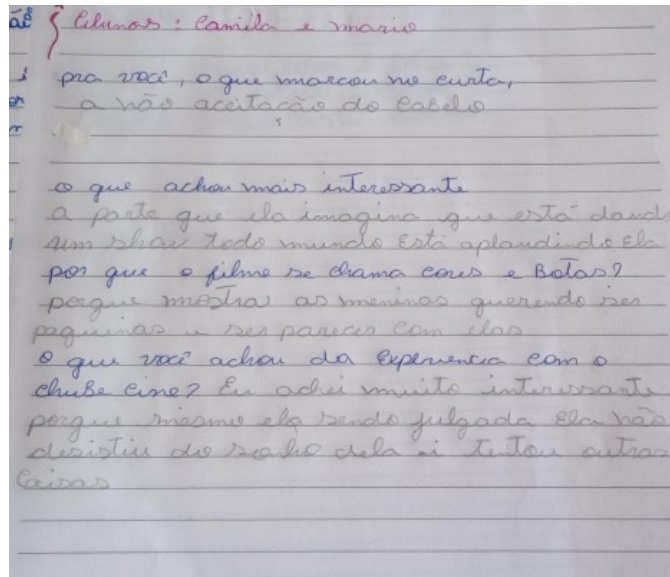 ão { Alunas: Camila e maria
pra você, o que marcou no curta,
a não aceitação do Cabelo
o que achou mais interessante
a parte que ela imagina que está dand
um show todo mundo Está aplaudindo Ela
por que o filme se chama cores e Botas?
porque mostra as meninas querendo ser
paquinas e ser parecer com elas
o que você achou da Experiencia com o
clube cine? Eu achei muito interessante
porque mesmo ela sendo julgada Ela não
desistiu do sonho dela i tentou outras
Coisas